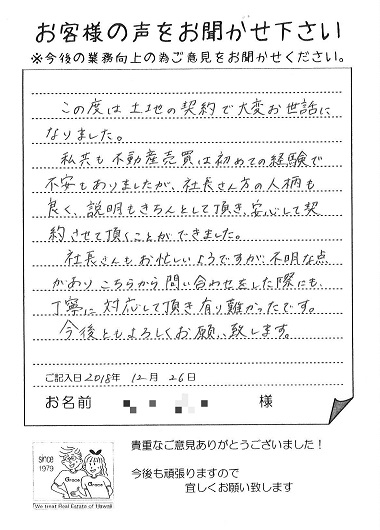 お客様の声をお聞かせ下さい
※今後の業務向上の為ご意見をお聞かせください。
この度は土地の契約で大変お世話に
なりました。
私共も不動産売買は初めての経験で
不安もありましたが、社長さん方の人柄も
良く、説明もきちんとして頂き、安心して契
約させて頂くことができました。
社長さんもお忙しいようですが、不明な点
があり こちらから問い合わせをした際にも、
丁寧に対応して頂き有り難かったです。
今後ともよろしくお願い致します。
ご記入日 2018年 12月 26日
お名前 様
貴重なご意見ありがとうございました!
今後も頑張りますので
宜しくお願い致します
since
1979
Grace
Grace
We treat Real Estate of Hawaii